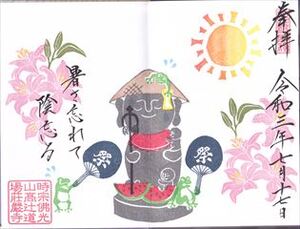 奉拝
令和三年七月十七日
暑さ忘れて
陰忘る
祭
祭
時宗佛光
山高辻道
場荘厳寺